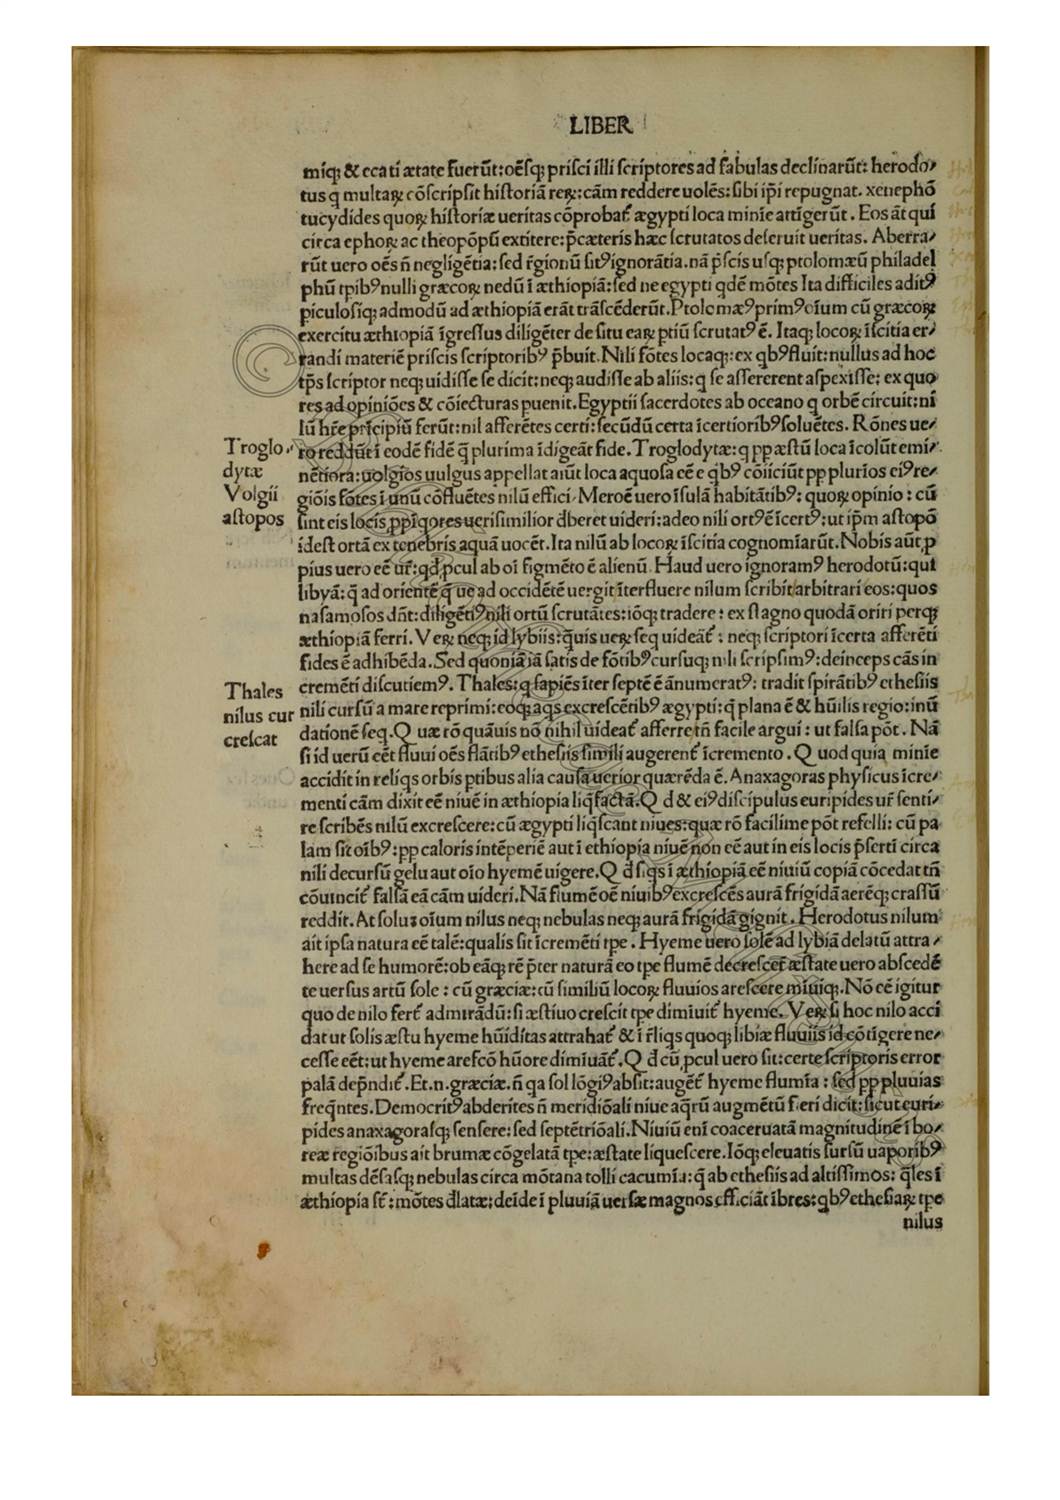 LIBER
miq; & eca ti ætate fuerūt: oēſq; priſci illi ſcriptores ad fabulas declinarūt: herodo⸗
tus q multaꝝ cōſcripſit hiſtoriā reꝝ: cām reddere uolēs: ſibi ip̄i repugnat. xenephō
tucydides quoꝝ hiſtoriæ ueritas cōprobat᷑ ægypti loca minīe attigerūt. Eos āt qui
circa ephoꝝ ac theopōpū extitere: p̄cæteris hæc ſcrutatos deſeruit ueritas. Aberra⸗
rūt uero oēs n̄ negligētia: ſed r̄gionū ſitꝰ ignorātia. nā p̄ſcis uſq; ptolomæū philadel
phū tpibꝰ nulli græcoꝝ nedū ī æthiopiā: ſed ne egypti qdē mōtes Ita difficiles aditꝰ
piculoſiq; admodū ad æthiopiā erāt trāſcēderūt. Ptolomæꝰ primꝰ oīum cū græcoꝝ
exercitu æthiopiā īgreſſus diligēter de ſitu eaꝝ ptiū ſcrutatꝰ ē. Itaq; locoꝝ īſcitia er⸗
randi materiē priſcis ſcriptoribꝰ p̄buit. Nili fōtes locaq;: ex qbꝰ fluit: nullus ad hoc
tp̄s ſcriptor neq; uidiſſe ſe dicit: neq; audiſſe ab aliis: q ſe aſſererent aſpexiſſe: ex quo
res ad opiniōes & cōiecturas puenit. Egyptii ſacerdotes ab oceano q orbē circuit: ni
lū hr̄e prīcipiū ferūt: nil afferētes certi: ſecūdū certa īcertioribꝰ ſoluētes. Rōnes ue⸗
ro reddūt ī eodē fidē q̄ plurima īdigeāt fide. Troglodytæ: q pp æſtū loca īcolūt emi⸗
Troglo⸗
dytæ
Volgii
aſtopos
nētiora: uolgios uulgus appellat aiūt loca aquoſa eē e qbꝰ cōiiciūt pp plurios eiꝰ re⸗
giōis fōtes ī unū cōfluētes nilū effici. Meroē uero īſulā habitātibꝰ: quoꝝ opinio: cū
ſint eis locis ppīqores ueriſimilior dberet uideri: adeo nili ortꝰ ē īcertꝰ: ut ip̄m aſtopō
ideſt ortā ex tenebris aquā uocēt. Ita nilū ab locoꝝ īſcitia cognomīarūt. Nobis aūt p
pius uero eē ur̄: qd pcul ab oī figmēto ē alienū. Haud uero ignoramꝰ herodotū: qui
libyā: q̄ ad orientē q̄ ue ad occidētē uergit īterfluere nilum ſcribit arbitrari eos: quos
naſamoſos dn̄t: diligētiꝰ nili ortū ſcrutātes: iōq; tradere: ex ſtagno quodā oriri perq;
æthiopiā ferri. Veꝝ neq; id lybiis: q̄uis ueꝝ ſeq uideāt᷑: neq; ſcriptori īcerta afferēti
fides ē adhibēda. Sed quoniā iā ſatis de fōtibꝰ curſuq; nili ſcripſimꝰ: deinceps cās in
Thales
nilus cur
creſcat
cremēti diſcutiemꝰ. Thales: q ſapiēs īter ſeptē ē ānumeratꝰ: tradit ſpirātibꝰ etheſiis
nili curſū a mare reprimi: eoq; aqs excreſcētibꝰ ægypti: q̄ plana ē & hūilis regio: inū
dationē ſeq. Quæ rō quāuis nō nihil uideat᷑ afferre tn̄ facile argui: ut falſa pōt. Nā
ſi id uerū eēt fluui oēs flātibꝰ etheſiis ſimili augerent᷑ īcremento. Quod quia minīe
accidit in reliqs orbis ptibus alia cauſa uerior quærēda ē. Anaxagoras phyſicus īcre⸗
menti cām dixit eē niuē in æthiopia liq̄factā. Qd & eiꝰ diſcipulus euripides ur̄ ſenti⸗
re ſcribēs nilū excreſcere: cū ægypti liq̄ſcant niues: quæ rō facilime pōt refelli: cū pa
lam ſit oībꝰ: pp caloris intēperiē aut ī ethiopia niuē non eē aut in eis locis p̄ſerti circa
nili decurſū gelu aut oīo hyemē uigere. Qd ſi qs ī æthiopiā eē niuiū copiā cōcedat tn̄
cōuincit᷑ falſā eā cām uideri. Nā flumē oē niuibꝰ excreſcēs aurā frigidā aerēq; craſſū
reddit. At ſoluz oīum nilus neq; nebulas neq; aurā frigidā gignit. Herodotus nilum
ait ipſa natura eē talē: qualis ſit īcremēti tpe. Hyeme uero ſolē ad lybiā delatū attra⸗
here ad ſe humorē: ob eāq; rē p̄ter naturā eo tpe flumē decreſcer̄ æſtate uero abſcedē
te uerſus artū ſole: cū græciæ: cū ſimiliū locoꝝ fluuios areſcere miuiq;. Nō eē igitur
quo de nilo fert᷑ admirādū: ſi æſtiuo creſcit tpe dimiuit᷑ hyeme. Veꝝ ſi hoc nilo acci
dat ut ſolis æſtu hyeme hūiditas attrahat᷑ & ī r̄liqs quoq; libiæ fluuiis id cōtīgere ne⸗
ceſſe eēt: ut hyeme arefcō hūore dimiuāt᷑. Qd cū pcul uero ſit: certe ſcriptoris error
palā dep̄ndit᷑. Et. n. græciæ. n̄ qa ſol lōgiꝰ abſit: augēt᷑ hyeme flumīa: ſed pp pluuias
freq̄ntes. Democritꝰ abderites n̄ meridiōali niue aq̄rū augmētū fieri dicit: ſicut euri⸗
pides anaxagoraſq; ſenſere: ſed ſeptētriōali. Niuiū enī coaceruatā magnitudinē ī bo⸗
reæ regiōibus ait brumæ cōgelatā tpe: æſtate liqueſcere. Iōq; eleuatis ſurſū uaporibꝰ
multas dēſaſq; nebulas circa mōtana tolli cacumīa: q̄ ab etheſiis ad altiſſimos: q̄les ī
æthiopia ſt̄: mōtes dlatæ; deīde ī pluuiā uerſæ magnos efficiāt ībres: qbꝰ etheſiaꝝ tpe
nilus